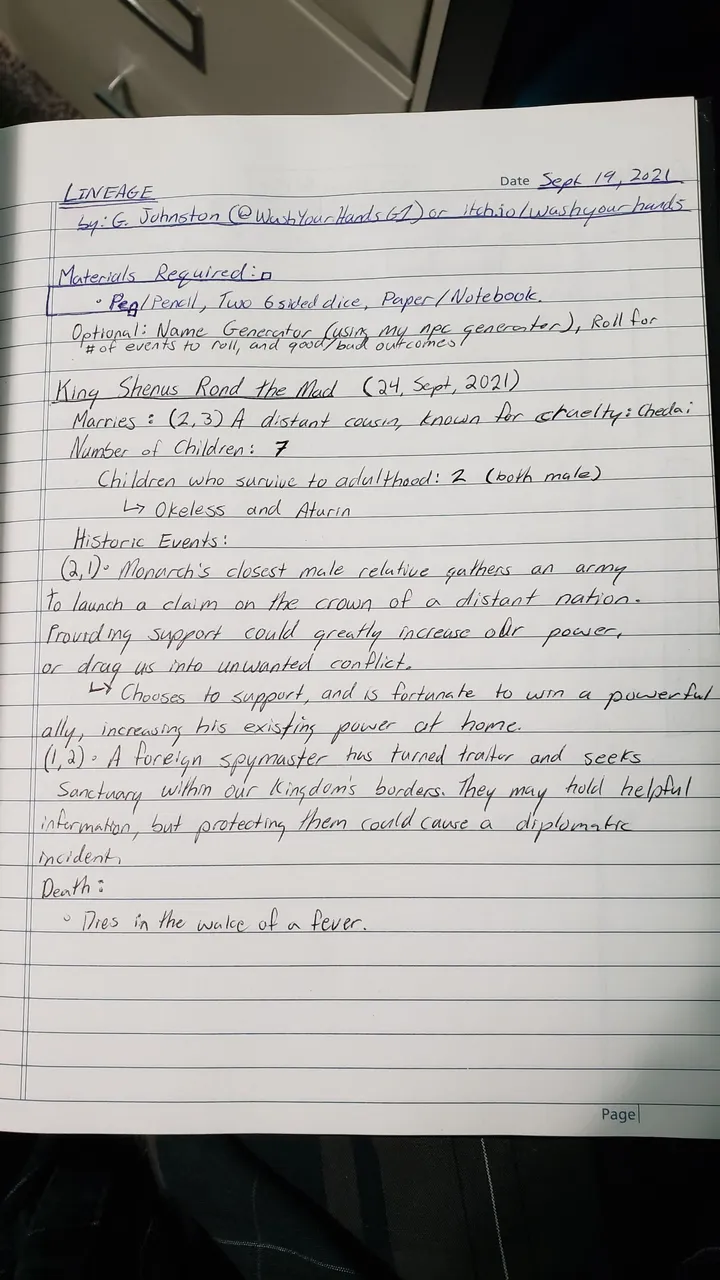 LINEAGE
Date Sept 19, 2021
by: G. Johnston (@WashYourHandsG1) or itch.io/washyourhands
Materials Required:
Pen/Pencil, Two 6 sided dice, Paper/Notebook.
Optional: Name Generator (using my npc generator), Roll for
# of events to roll, and good/bad outcomes!
King Shenus Rond the Mad (24, Sept, 2021)
Marries: (2,3) A distant cousin, known for cruelty: Chedai
Number of Children: 7
Children who survive to adulthood: 2 (both male)
↳ Okeless and Aturin
Historic Events:
(2,1)• Monarch's closest male relative gathers an army
to launch a claim on the crown of a distant nation.
Providing support could greatly increase our power,
or drag us into unwanted conflict.
↳ Chooses to support, and is fortunate to win a powerful
ally, increasing his existing power at home.
(1,2)• A foreign spymaster has turned traitor and seeks
Sanctuary within our Kingdom's borders. They may hold helpful
information, but protecting them could cause a diplomatic
incident.
Death:
• Dies in the wake of a fever.
Page